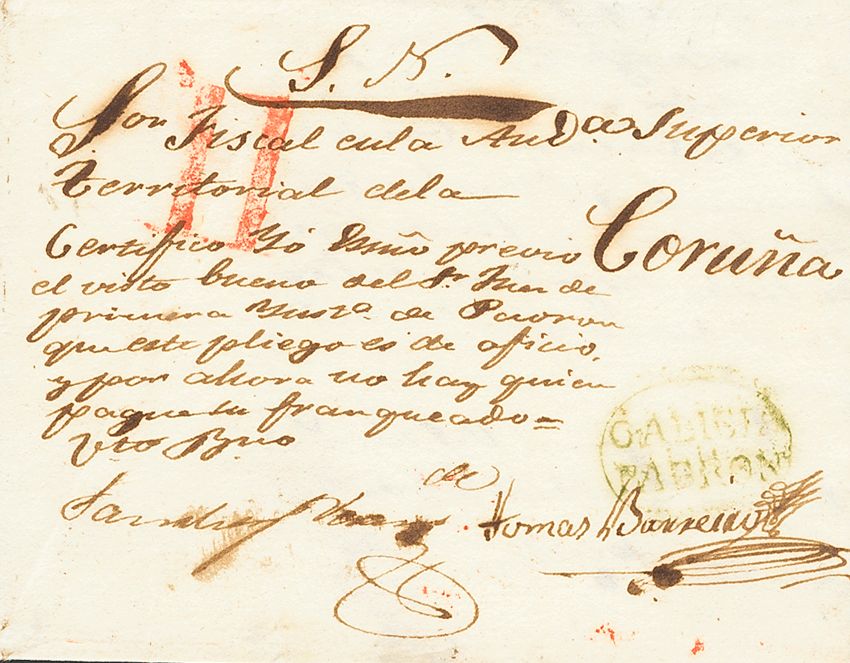 S. N.
Sor Fiscal en la Auda Superior
territorial de la
Coruña
Certifico Yó Esnô previo
el visto bueno del Sr Juez de
primera Ynsta. de Padron
que este pliego es de oficio,
y por ahora no hay quien
pague su franqueado=
Vto Bno
de
Tomas Barreiro
GALISIA
PADRON